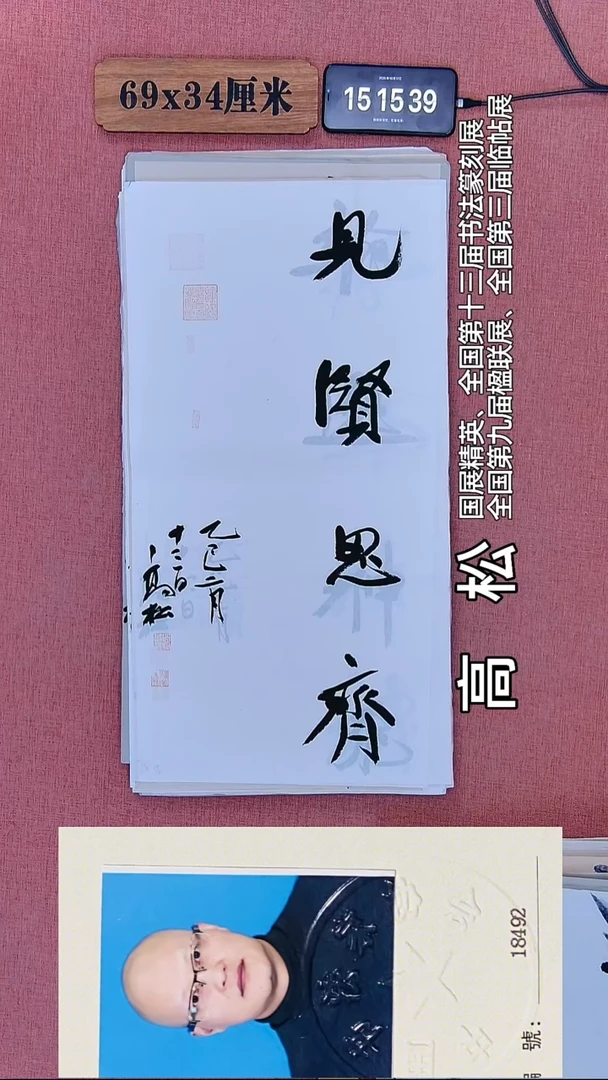 69x34厘米
15 15 39
見賢思齊
乙巳二月
十二日
高松
高 松
国展精英、全国第十三届书法篆刻展
全国第九届楹联展、全国第三届临帖展
號:
18492